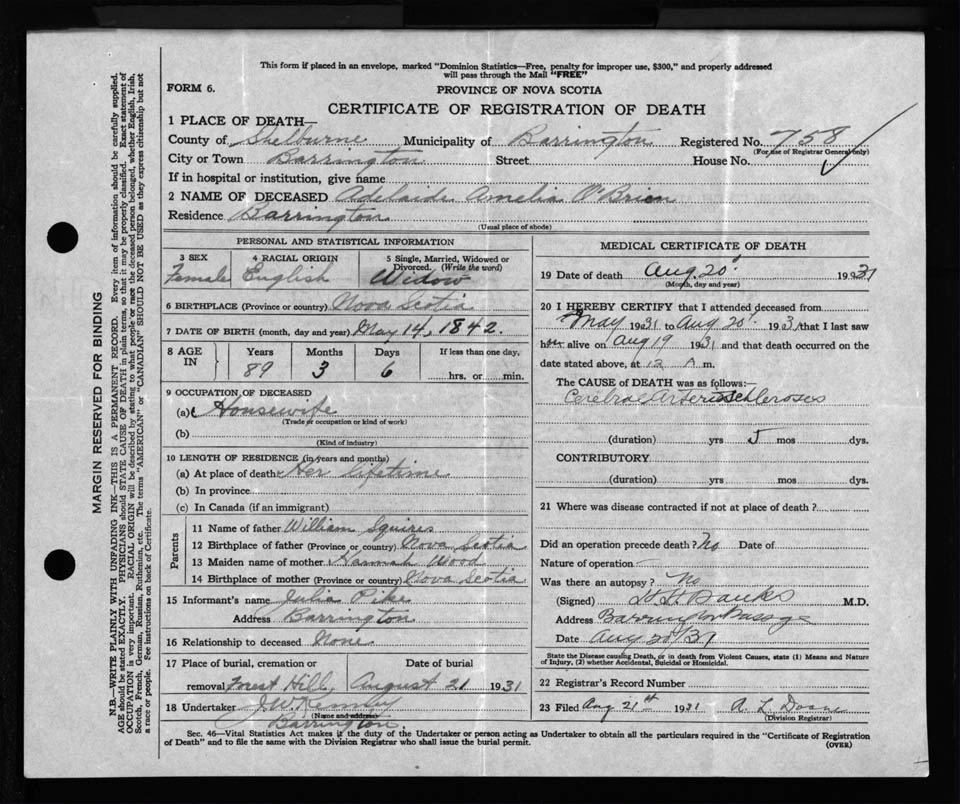 This form if placed in an envelope, marked "Dominion Statistics—Free, penalty for improper use, $300," and properly addressed
will pass through the Mail "FREE"
FORM 6.
PROVINCE OF NOVA SCOTIA
CERTIFICATE OF REGISTRATION OF DEATH
1 PLACE OF DEATH—
County of Shelburne Municipality of Barrington Registered No. 758
(For use of Registrar General only)
City or Town Barrington Street House No.
If in hospital or institution, give name
2 NAME OF DECEASED Adelaide Amelia O'Brien
Residence Barrington
(Usual place of abode)
PERSONAL AND STATISTICAL INFORMATION
3 SEX
Female
4 RACIAL ORIGIN
English
5 Single, Married, Widowed or
Divorced. (Write the word)
Widow
6 BIRTHPLACE (Province or country) Nova Scotia
7 DATE OF BIRTH (month, day and year) May 14, 1842.
8 AGE IN
Years Months Days If less than one day,
89 3 6 hrs. or min.
9 OCCUPATION OF DECEASED
(a) Housewife
(Trade or occupation or kind of work)
(b)
(Kind of industry)
10 LENGTH OF RESIDENCE (in years and months)
(a) At place of death Her lifetime
(b) In province
(c) In Canada (if an immigrant)
Parents
11 Name of father William Squires
12 Birthplace of father (Province or country) Nova Scotia
13 Maiden name of mother Hannah Wood
14 Birthplace of mother (Province or country) Nova Scotia
15 Informant's name Julia Pike
Address Barrington
16 Relationship to deceased None
17 Place of burial, cremation or Date of burial
removal Forest Hill, August 21 1931
18 Undertaker J.W. Kenney
(Name and address)
Barrington.
MEDICAL CERTIFICATE OF DEATH
19 Date of death Aug. 20 1931
(Month, day and year)
20 I HEREBY CERTIFY that I attended deceased from
May 1931 to Aug 20 1931 that I last saw
her alive on Aug 19 1931 and that death occurred on the
date stated above, at 12 m.
The CAUSE of DEATH was as follows:—
Cerebral Arteriosclerosis
(duration) yrs 5 mos dys.
CONTRIBUTORY
(duration) yrs mos dys.
21 Where was disease contracted if not at place of death?
Did an operation precede death? No Date of
Nature of operation
Was there an autopsy? No
(Signed) Banks M.D.
Address Barrington Passage
Date Aug 20/31
State the Disease causing Death, or in death from Violent Causes, state (1) Means and Nature
of Injury, (2) whether Accidental, Suicidal or Homicidal.
22 Registrar's Record Number
23 Filed Aug 21st 1931 A. L. Doane
(Division Registrar)
Sec. 46—Vital Statistics Act makes it the duty of the Undertaker or person acting as Undertaker to obtain all the particulars required in the "Certificate of Registration
of Death" and to file the same with the Division Registrar who shall issue the burial permit.
(OVER)
MARGIN RESERVED FOR BINDING
N.B.—WRITE PLAINLY WITH UNFADING INK—THIS IS A PERMANENT RECORD. Every item of information should be carefully supplied.
AGE should be stated EXACTLY. PHYSICIANS should STATE CAUSE OF DEATH in plain terms, so that it may be properly classified. Exact statement of
OCCUPATION is very important. RACIAL ORIGIN will be described by stating to what people or race the deceased person belonged, whether English, Irish,
Scotch, French, German, Russian, Ruthenian, etc. The terms "AMERICAN" or "CANADIAN" SHOULD NOT BE USED as they express citizenship but not
a race or people. See instructions on back of Certificate.